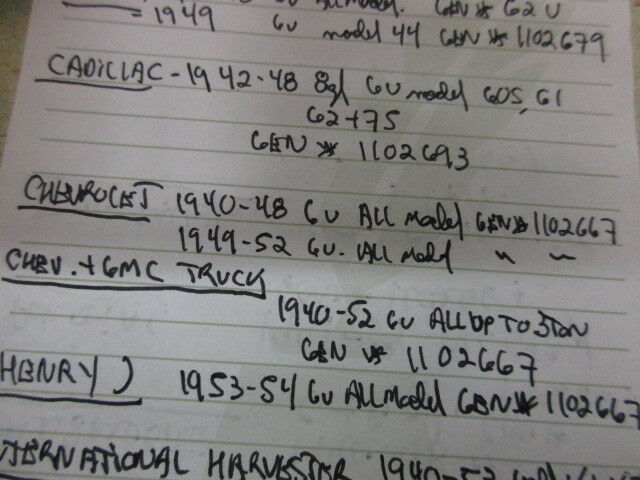 ALL Model. GEN # G2U
= 1949 6V model 44 GEN # 1102679
CADILLAC - 1942-48 8cyl 6V model 60S, 61
62 + 75
GEN # 1102693
CHEVROLET 1940-48 6V ALL Model GEN# 1102667
1949-52 6V. ALL Model " "
CHEV. + GMC TRUCK
1940-52 6V ALL UP TO 3TON
GEN # 1102667
HENRY J 1953-54 6V ALL Model GEN# 1102667
TERNATIONAL HARVESTER 1940-52